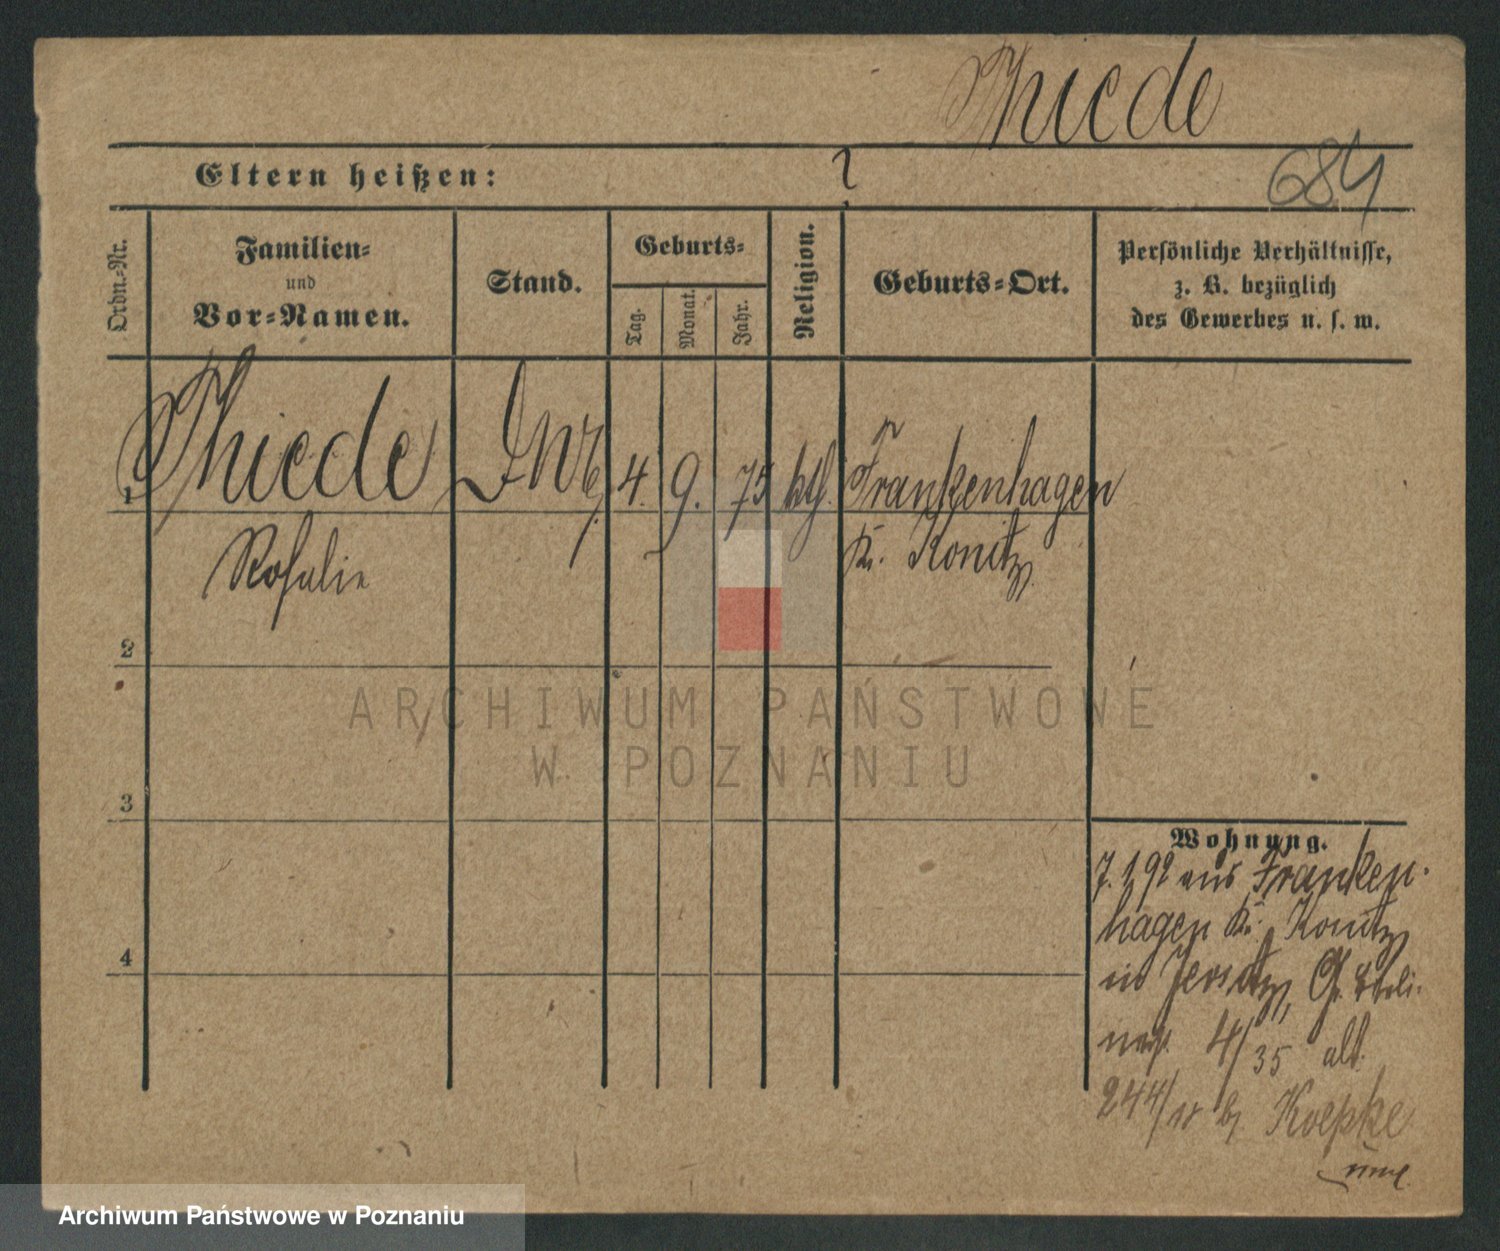 Thiede
Eltern heißen: ?
684
Ordn.-Nr.
Familien-
und
Vor-Namen.
Stand.
Geburts-
Tag.
Monat.
Jahr.
Religion.
Geburts-Ort.
Persönliche Verhältnisse,
z. B. bezüglich
des Gewerbes u. s. w.
1 Thiede 4. 9. 75 kth. Frankenhagen
Rosalie Kr. Konitz
2
ARCHIWUM PAŃSTWOWE
W POZNANIU
3
Wohnung.
7.1.92 aus Franken-
hagen Kr. Konitz
in Jersitz, Gr. Berli-
nerstr. 4/35 alt.
244/ b/ Koepke
4
Archiwum Państwowe w Poznaniu